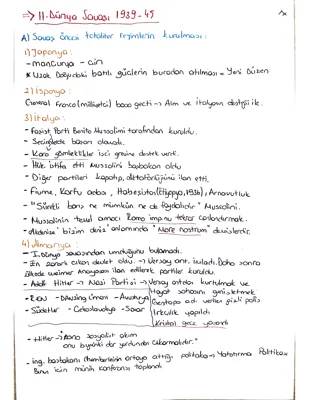 ⇒ II. Dünya Savaşı 1939-45
A) Savaş öncesi totaliter rejimlerin kurulması:
1) Japonya:
- mançurya - çin
* Uzak Doğu'daki batılı güçlerin buradan atılması = Yeni Düzen
2) İspanya:
General Franco (milliyetçi) başa geçti → Alm ve italyanın desteği ile.
3) İtalya:
- Faşist Parti Benito Mussolini tarafından kuruldu.
- Seçimlerde başarı olamadı.
- Kara gömlekliler işçi grevine destek verdi.
- Hük istifa etti Mussolini başbakan oldu
- Diğer partileri kapatıp, diktatörlüğünü ilan etti.
- Fiume, Korfu adası, Habeşistan (Etiyopya, 1936), Arnavutluk
- "Sürekli barış ne mümkün ne de faydalıdır" Mussolini.
- Mussolinin temel amacı Roma imp.nu tekrar canlandırmak.
- Akdenize "bizim deniz" anlamında "Mare nostrum" demişlerdir.
4) Almanya:
- I. Dünya savaşından umduğunu bulamadı.
- En zararlı çıkan devlet oldu. → Versay ant. imzaladı. Daha sonra
ülkede weimar Anayasası ilan edilerek partiler kuruldu.
- Adolf Hitler → Nazi Partisi → Versay antdan kurtulmak ve
Hayat sahasını genişletmek
- Danzing limanı - Avusturya
Gestapo adı verilen gizli polis
- Südetler - Çekoslavakya - Saar
Irkçılık yapıldı
Kristal gece yaşandı
- Hitler →
- ing. başbakanı Chamberlainin ortaya attığı politaka → Yatıştırma Politikası
Bunun için münih konferansı toplandı